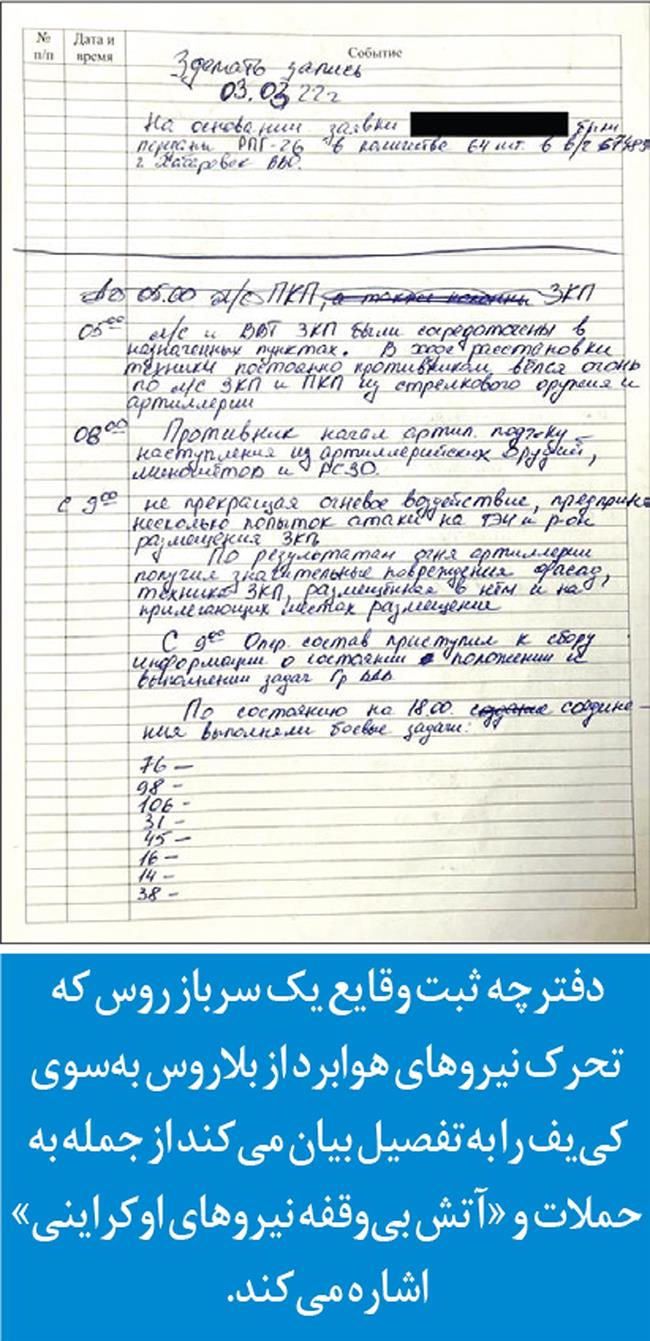 № п/п
Дата и время
Событие
Зделать запись
03.03 22г
На основании заявки были
переданы РПГ-26 в количестве 64 шт. в в/ч
г. ВВО.
До 05.00 л/с ПКП, а также колонны ЗКП
05⁰⁰ л/с и ВВТ ЗКП были сосредоточены в
назначенных пунктах. В ходе расстановки
техники постоянно противником вёлся огонь
по л/с ЗКП и ПКП из стрелкового оружия и
артиллерии
08⁰⁰ Противник начал артил. подг-ку
наступления из артиллерийских орудий,
миномётов и РСЗО.
с 9⁰⁰ не прекращая огневое воздействие, предприн
несколько попыток атаки на и р-он
размещения ЗКП.
По результатам огня артиллерии
получил значительные повреждения фасад,
техника ЗКП, размещённая в нём и на
прилегающих местах размещения
С 9⁰⁰ Опер. состав приступил к сбору
информации о состоянии положении и
выполнении задач Гр ВДВ
По состоянию на 18.00. соедине-
ния выполняли боевые задачи:
76 –
98 –
106 –
31 –
45 –
16 –
14 –
38 –
دفترچه ثبت وقایع یک سرباز روس که
تحرک نیروهای هوابرد از بلاروس به‌سوی
کی‌یف را به تفصیل بیان می‌کند از جمله به
حملات و «آتش بی‌وقفه نیروهای اوکراینی»
اشاره می‌کند.